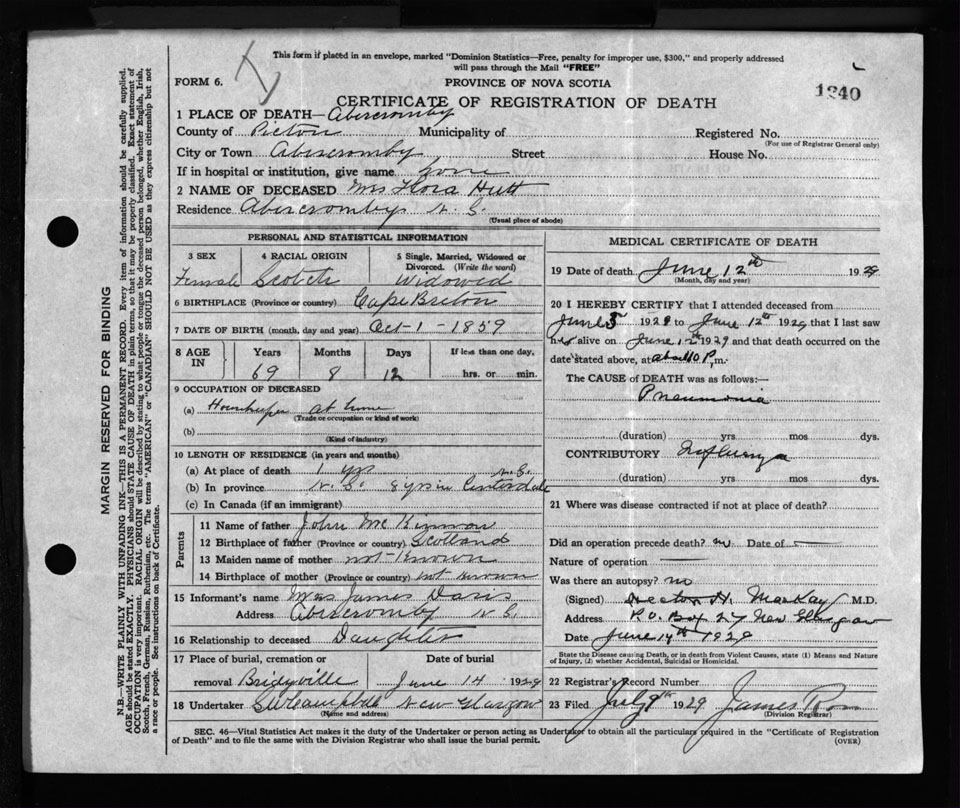 This form if placed in an envelope, marked "Dominion Statistics—Free, penalty for improper use, $300," and properly addressed
will pass through the Mail "FREE"
FORM 6.
PROVINCE OF NOVA SCOTIA
1240
CERTIFICATE OF REGISTRATION OF DEATH
1 PLACE OF DEATH—Abercromby
County of Pictou Municipality of Registered No.
(For use of Registrar General only)
City or Town Abercromby Street House No.
If in hospital or institution, give name
2 NAME OF DECEASED Mrs Flora Hutt
Residence Abercromby N.S.
(Usual place of abode)
PERSONAL AND STATISTICAL INFORMATION
3 SEX 4 RACIAL ORIGIN 5 Single, Married, Widowed or
Divorced. (Write the word)
Female Scotch Widowed
6 BIRTHPLACE (Province or country) Cape Breton
7 DATE OF BIRTH (month, day and year) Oct-1-1859
8 AGE IN Years Months Days If less than one day,
69 8 12 hrs. or min.
9 OCCUPATION OF DECEASED
(a) Housekeeper at home
(Trade or occupation or kind of work)
(b)
(Kind of industry)
10 LENGTH OF RESIDENCE (in years and months)
(a) At place of death 1 yr N.S.
(b) In province N.S. 8 yrs in Centerdale
(c) In Canada (if an immigrant)
Parents
11 Name of father John McKinnon
12 Birthplace of father (Province or country) Scotland
13 Maiden name of mother not Known
14 Birthplace of mother (Province or country) not known
15 Informant's name Mrs James Davis
Address Abercromby N.S.
16 Relationship to deceased Daughter
17 Place of burial, cremation or Date of burial
removal Bridgeville June 14 1929
18 Undertaker New Glasgow
(Name and address)
MEDICAL CERTIFICATE OF DEATH
19 Date of death June 12th 1929
(Month, day and year)
20 I HEREBY CERTIFY that I attended deceased from
June 5 1929 to June 12th 1929 that I last saw
her alive on June 12th 1929 and that death occurred on the
date stated above, at about 10 P.m.
The CAUSE of DEATH was as follows:—
Pneumonia
(duration) yrs mos dys.
CONTRIBUTORY Influenza
(duration) yrs mos dys.
21 Where was disease contracted if not at place of death?
Did an operation precede death? no Date of —
Nature of operation —
Was there an autopsy? no
(Signed) Hector H. MacKay M.D.
Address P.O. Box 27 New Glasgow
Date June 14th 1929
State the Disease causing Death, or in death from Violent Causes, state (1) Means and Nature
of Injury, (2) whether Accidental, Suicidal or Homicidal.
22 Registrar's Record Number
23 Filed July 9th 1929 James Ross
(Division Registrar)
SEC. 46—Vital Statistics Act makes it the duty of the Undertaker or person acting as Undertaker to obtain all the particulars required in the "Certificate of Registration
of Death" and to file the same with the Division Registrar who shall issue the burial permit.
(OVER)
MARGIN RESERVED FOR BINDING
N.B.—WRITE PLAINLY WITH UNFADING INK—THIS IS A PERMANENT RECORD. Every item of information should be carefully supplied.
AGE should be stated EXACTLY. PHYSICIANS should STATE CAUSE OF DEATH in plain terms, so that it may be properly classified. Exact statement of
OCCUPATION is very important. RACIAL ORIGIN will be described by stating to what people or tongue the deceased person belonged, whether English, Irish,
Scotch, French, German, Russian, Ruthenian, etc. The terms "AMERICAN" or "CANADIAN" SHOULD NOT BE USED as they express citizenship but not
a race or people. See instructions on back of Certificate.